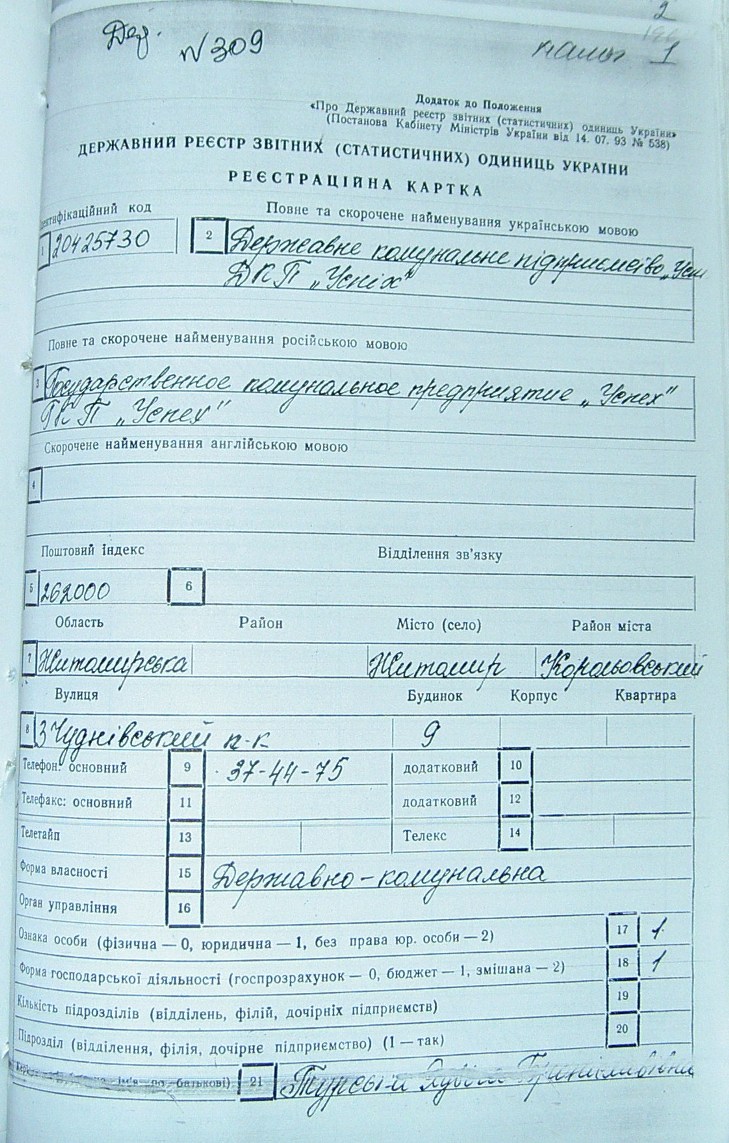 2
Дер. N 309
1
Додаток до Положення
«Про Державний реєстр звітних (статистичних) одиниць України»
(Постанова Кабінету Міністрів України від 14. 07. 93 № 538)
ДЕРЖАВНИЙ РЕЄСТР ЗВІТНИХ (СТАТИСТИЧНИХ) ОДИНИЦЬ УКРАЇНИ
РЕЄСТРАЦІЙНА КАРТКА
ентифікаційний код Повне та скорочене найменування українською мовою
1 20425730 2 Державне комунальне підприємство „Успі
ДКП „Успіх"
Повне та скорочене найменування російською мовою
3 Государственное комунальное предприятие „Успех"
ГКП „Успех"
Скорочене найменування англійською мовою
4
Поштовий індекс Відділення зв'язку
5 262000 6
Область Район Місто (село) Район міста
7 Житомирська Житомир Корольовський
Вулиця Будинок Корпус Квартира
8 3 Чуднівський п-к 9
Телефон: основний 9 37-44-75 додатковий 10
Телефакс: основний 11 додатковий 12
Телетайп 13 Телекс 14
Форма власності 15 Державно-комунальна
Орган управління 16
Ознака особи (фізична — 0, юридична — 1, без права юр. особи — 2) 17 1
Форма господарської діяльності (госпрозрахунок — 0, бюджет — 1, змішана — 2) 18 1
Кількість підрозділів (відділень, філій, дочірніх підприємств) 19
Підрозділ (відділення, філія, дочірнє підприємство) (1 — так) 20
по батькові) 21